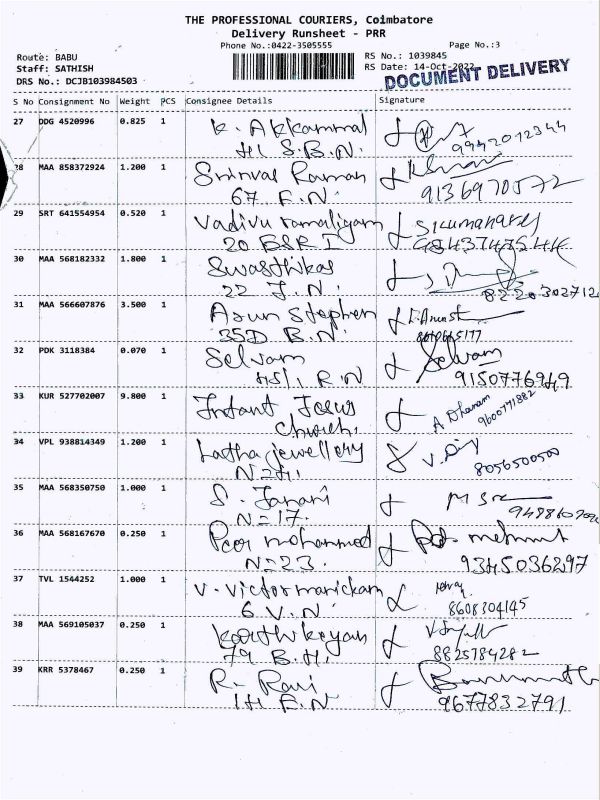 THE PROFESSIONAL COURIERS, Coimbatore
Delivery Runsheet - PRR
Phone No.:0422-3505555 Page No.:3
Route: BABU RS No.: 1039845
Staff: SATHISH RS Date: 14-Oct-2022
DRS No.: DCJB103984503 DOCUMENT DELIVERY
S No Consignment No Weight PCS Consignee Details Signature
27 DDG 4520996 0.825 1 K. Akkammal
S.B.N. 9942012344
28 MAA 858372924 1.200 1 Srinivas Raman
67 F.N. 9136970572
29 SRT 641554954 0.520 1 Vadivu ramaligam
20 BSR I
30 MAA 568182332 1.800 1 Swasthikas
22 J.N. 8220302712
31 MAA 566607876 3.500 1 Arun Stephen
35D B.N.
32 PDK 3118384 0.070 1 Selvam Selvam
45/1 R.N 9150776949
33 KUR 527702007 9.800 1 Infant Jesus A Dhanam
Church. 9600771882
34 VPL 938814349 1.200 1 Latha jewellery
8056500500
35 MAA 568350750 1.000 1 S. Janani
N=17.
36 MAA 568167670 0.250 1 Peer mohammed
N=23. 9345036297
37 TVL 1544252 1.000 1 V. Victor manickam
6 V.N 8608304145
38 MAA 569105037 0.250 1 Karthikeyan
79 B.H. 8825784282
39 KRR 5378467 0.250 1 R. Ravi
14 F.N 9677832791